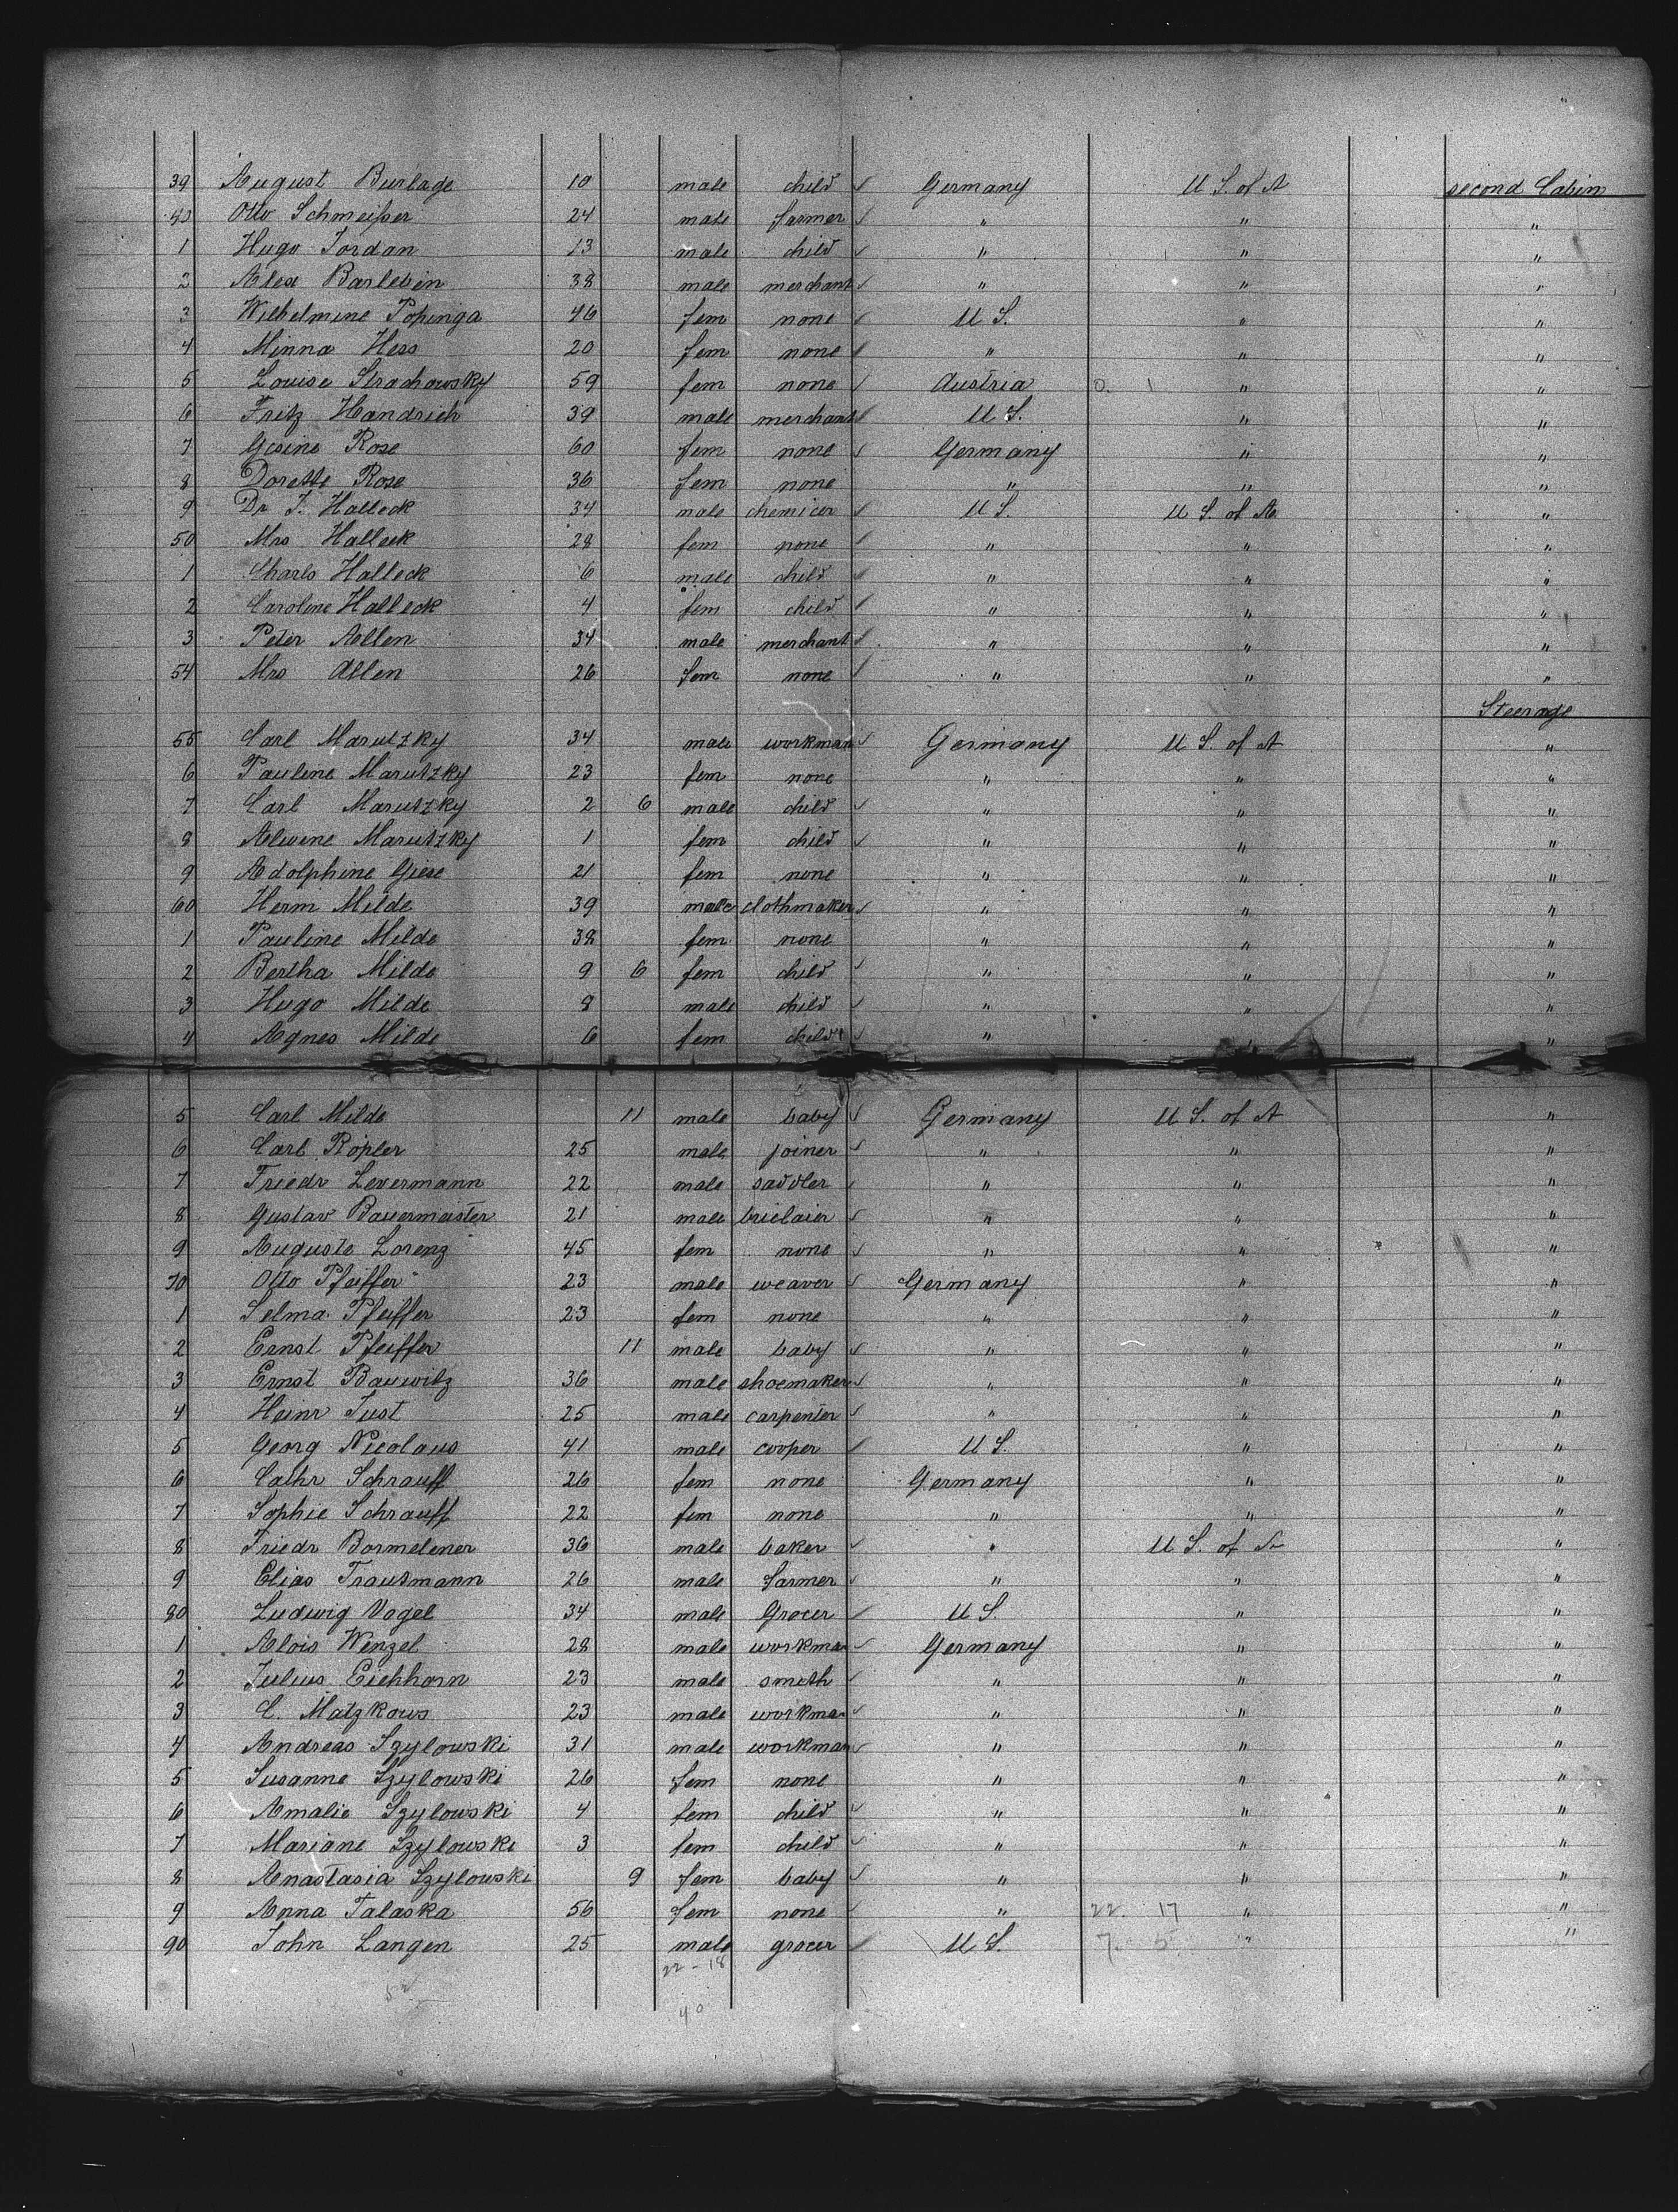 39 August Burlage 10 male child Germany U S. of A second Cabin
40 Otto Schmeißer 24 male farmer " " "
1 Hugo Jordan 13 male child " " "
2 Alex Barleben 38 male merchant " " "
3 Wilhelmine Popinga 46 fem none U S. " "
4 Minna Hess 20 fem none " " "
5 Louise Strachowsky 59 fem none Austria 0. 1 " "
6 Fritz Handrich 39 male merchant U S. " "
7 Gesine Rose 60 fem none Germany " "
8 Dorette Rose 36 fem none " " "
9 Dr J. Halleck 34 male chemicer U S. U S. of A "
50 Mrs Halleck 28 fem none " " "
1 Charls Halleck 6 male child " " "
2 Caroline Halleck 4 fem child " " "
3 Peter Allen 34 male merchant " " "
54 Mrs Allen 26 fem none " " "
Steerage
55 Carl Marutzky 34 male workman Germany U S. of A "
6 Pauline Marutzky 23 fem none " " "
7 Carl Marutzky 2 6 male child " " "
8 Alwine Marutzky 1 fem child " " "
9 Adolphine Giese 21 fem none " " "
60 Herm Milde 39 male clothmaker " " "
1 Pauline Milde 38 fem none " " "
2 Bertha Milde 9 6 fem child " " "
3 Hugo Milde 8 male child " " "
4 Agnes Milde 6 fem child " " "
5 Carl Milde 11 male baby Germany U S. of A "
6 Carl Röpler 25 male joiner " " "
7 Friedr Levermann 22 male saddler " " "
8 Gustav Bauermaister 21 male briclaier " " "
9 Auguste Lorenz 45 fem none " " "
70 Otto Pfeiffer 23 male weaver Germany " "
1 Selma Pfeiffer 23 fem none " " "
2 Ernst Pfeiffer 11 male baby " " "
3 Ernst Bauwitz 36 male shoemaker " " "
4 Heinr Just 25 male carpenter " " "
5 Georg Nicolaus 41 male cooper U S. " "
6 Cathr Schrauff 26 fem none Germany " "
7 Sophie Schrauff 22 fem none " " "
8 Friedr Bormelener 36 male baker " U S. of A "
9 Elias Trautmann 26 male farmer " " "
80 Ludwig Vogel 34 male Grocer U S. " "
1 Alois Wenzel 28 male workman Germany " "
2 Julius Eichhorn 23 male smith " " "
3 C. Matzkows 23 male workman " " "
4 Andreas Szylowski 31 male workman " " "
5 Susanne Szylowski 26 fem none " " "
6 Amalie Szylowski 4 fem child " " "
7 Mariane Szylowski 3 fem child " " "
8 Anastasia Szylowski 9 fem baby " " "
9 Anna Talaska 56 fem none " 22. 17 " "
90 John Langen 25 male grocer U S. 7. 5. " "
22 - 18
52
40